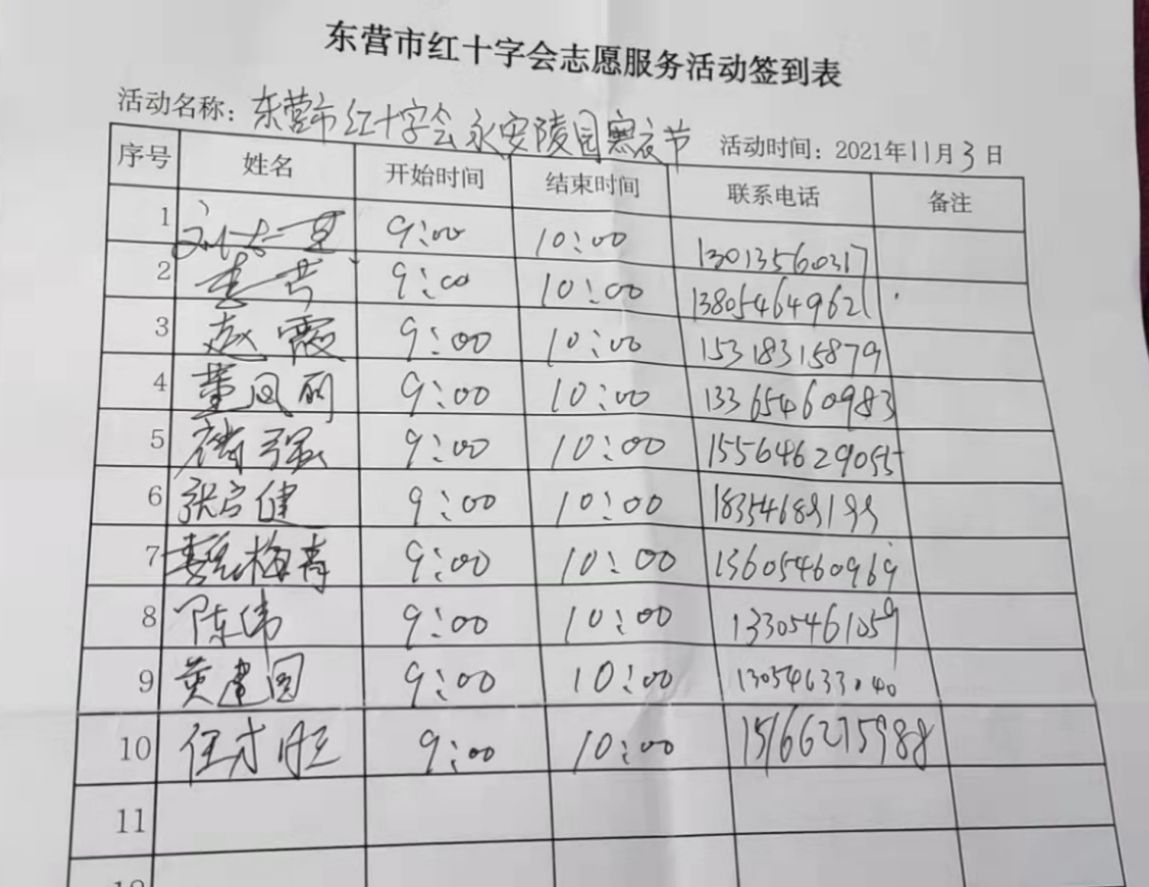 东营市红十字会志愿服务活动签到表
活动名称：东营市红十字会永安陵园寒衣节 活动时间：2021年11月3日
序号 姓名 开始时间 结束时间 联系电话 备注
1 9:00 10:00 13013560317
2 9:00 10:00 13805464962
3 赵霞 9:00 10:00 15318315879
4 董凤丽 9:00 10:00 13365460983
5 强 9:00 10:00 15564629055
6 张启健 9:00 10:00 18354689199
7 梅青 9:00 10:00 13605460969
8 陈伟 9:00 10:00 13305461059
9 黄建国 9:00 10:00
10 任才旺 9:00 10:00 15166275988
11